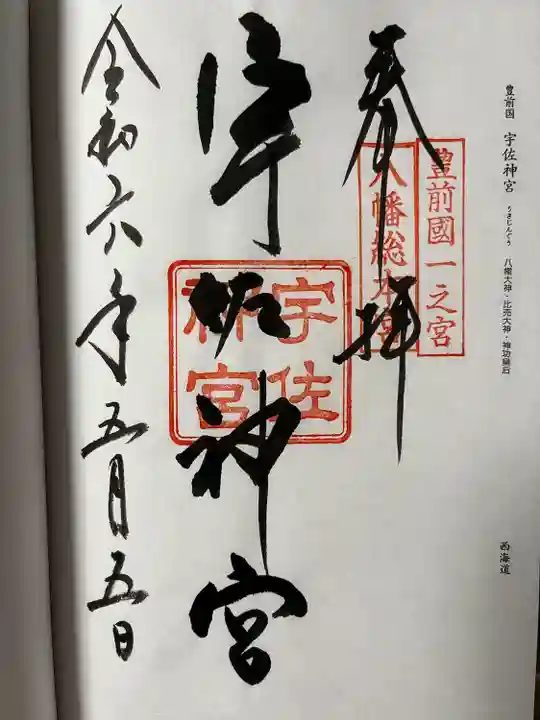 豊前国 宇佐神宮 うさじんぐう 八幡大神・比売大神・神功皇后
西海道
豊前國一之宮
八幡総本宮
奉拝
宇佐神宮
宇佐
神宮
令和六年五月五日